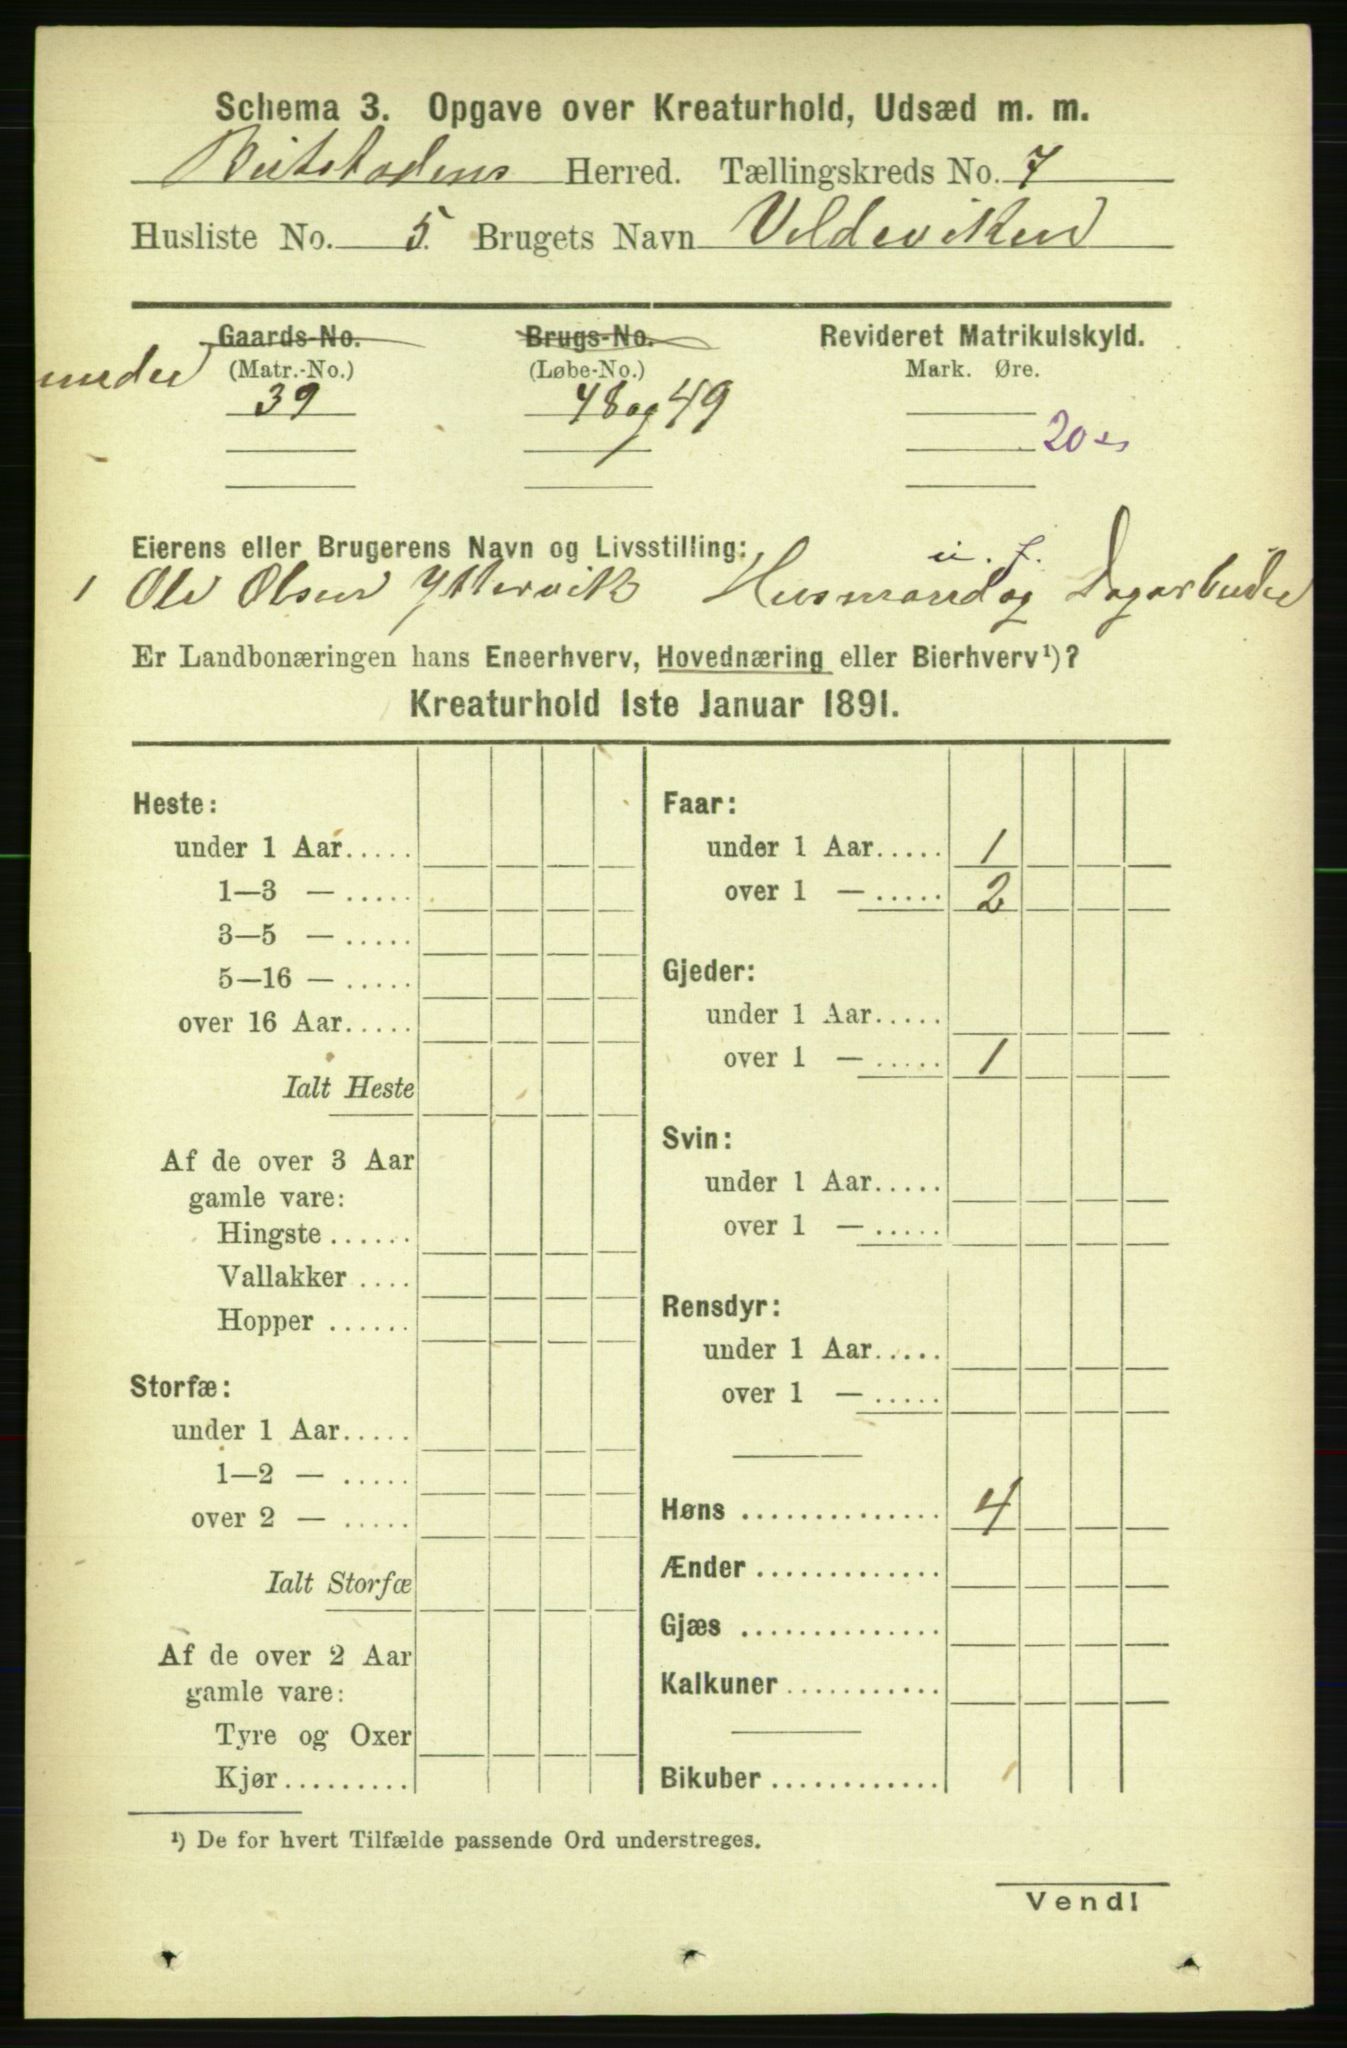 Schema 3. Opgave over Kreaturhold, Udsæd m. m.
Beitstadens Herred. Tællingskreds No. 7
Husliste No. 5. Brugets Navn Veldeviken
Gaards-No. Brugs-No. Revideret Matrikulskyld.
under (Matr.-No.) (Løbe-No.) Mark. Øre.
39 48 og 49
20
Eierens eller Brugerens Navn og Livsstilling: u. J.
1 Ole Olsen Yttervik Husmand og Dagarbeider
Er Landbonæringen hans Eneerhverv, Hovednæring eller Bierhverv¹)?
Kreaturhold 1ste Januar 1891.
Heste:
under 1 Aar.....
1—3 — .....
3—5 — .....
5—16 — .....
over 16 Aar.....
Ialt Heste
Af de over 3 Aar
gamle vare:
Hingste ......
Vallakker ....
Hopper ......
Storfæ:
under 1 Aar.....
1—2 — .....
over 2 — .....
Ialt Storfæ
Af de over 2 Aar
gamle vare:
Tyre og Oxer
Kjør.........
Faar:
under 1 Aar..... 1
over 1 — ..... 2
Gjeder:
under 1 Aar.....
over 1 — ..... 1
Svin:
under 1 Aar.....
over 1 — .....
Rensdyr:
under 1 Aar.....
over 1 — .....
Høns .............. 4
Ænder .............
Gjæs ..............
Kalkuner ...........
Bikuber ............
¹) De for hvert Tilfælde passende Ord understreges.
Vend!